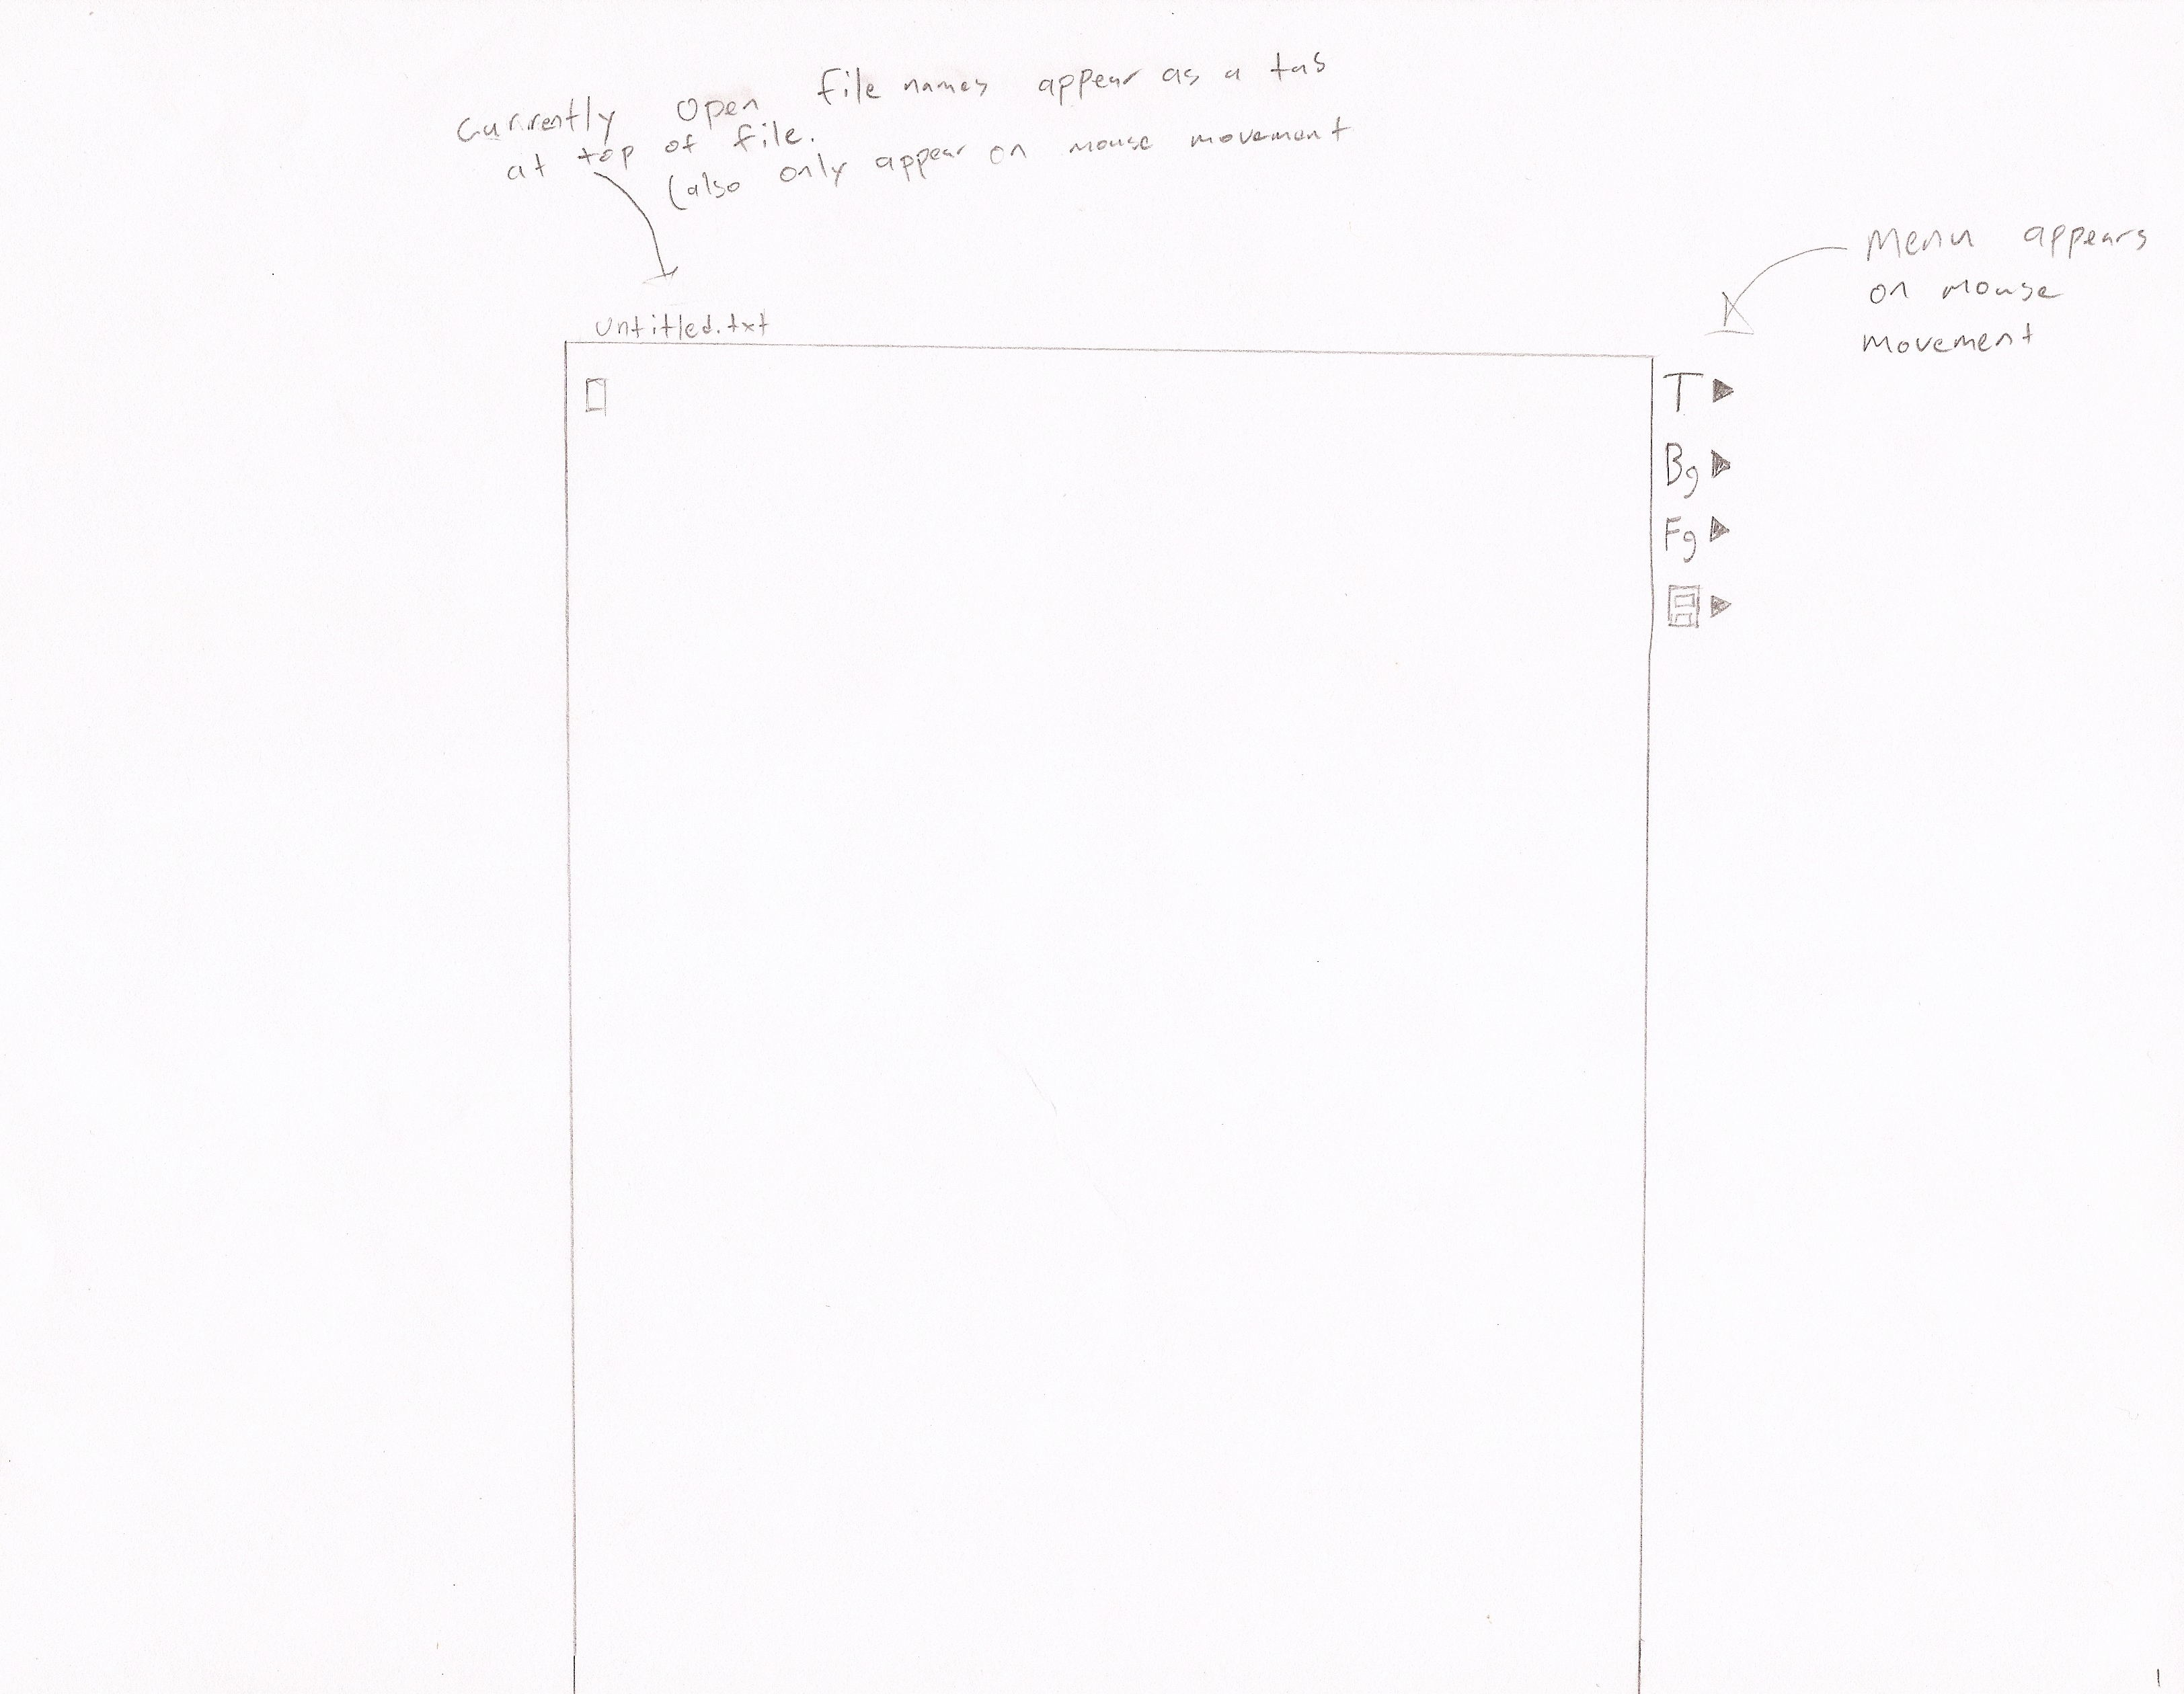 Currently open file names appear as a tab
at top of file.
(also only appear on mouse movement
Menu appears
on mouse
movement
Untitled.txt
T
Bg
Fg